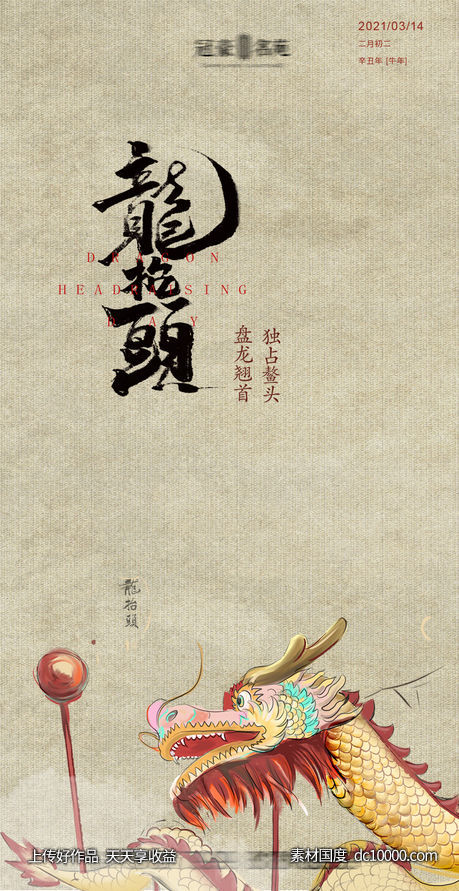 2021/03/14
二月初二
辛丑年 [牛年]
龍抬頭
DRAGON
HEAD-RAISING
DAY
独占鳌头
盘龙翘首
龍抬頭
上传好作品 天天享收益
素材国度 dc10000.com